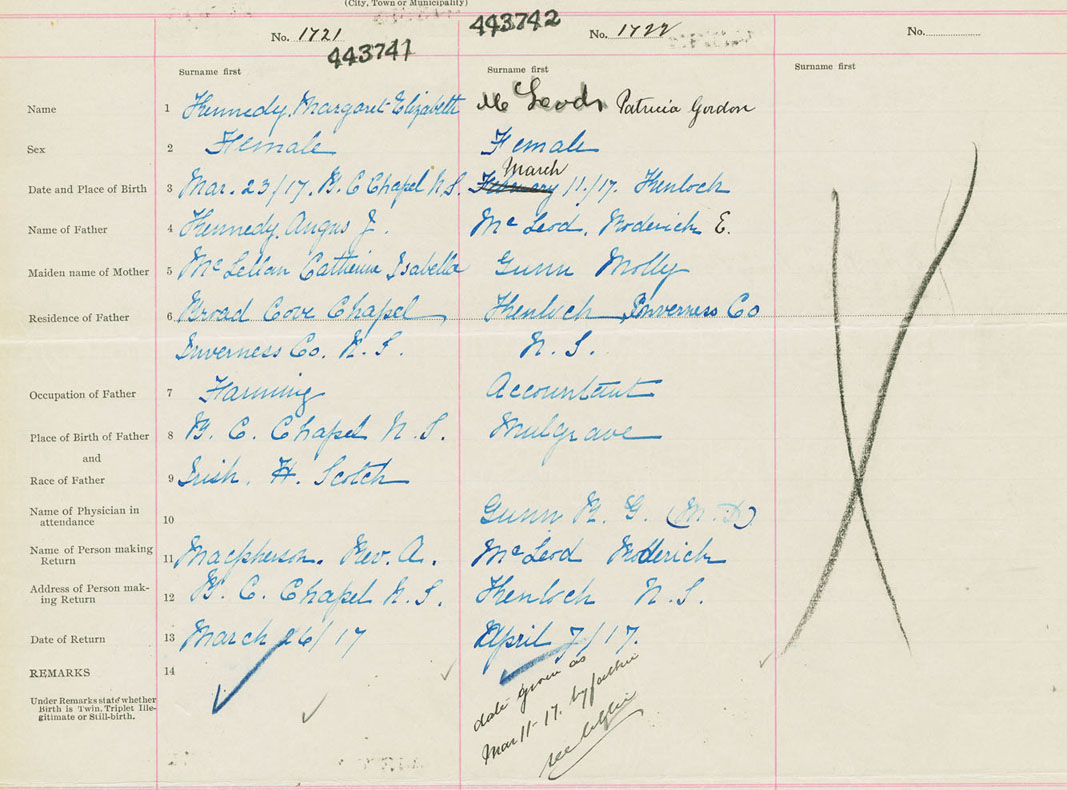 (City, Town or Municipality)
No. 1721 443742 No. 1722 No.
443741
Surname first Surname first Surname first
Name 1 Kennedy, Margaret Elizabeth McLeod, Patricia Gordon
Sex 2 Female Female
March
Date and Place of Birth 3 Mar. 23/17. B. C Chapel N.S. February 11/17. Kenloch
Name of Father 4 Kennedy, Angus J. McLeod, Roderick E.
Maiden name of Mother 5 McLellan Catherine Isabella Gunn Molly
Residence of Father 6 Broad Cove Chapel Kenloch Inverness Co
Inverness Co. N.S. N.S.
Occupation of Father 7 Farming Accountant
Place of Birth of Father 8 B. C. Chapel N.S. Mulgrave
and
Race of Father 9 Irish. H. Scotch
Name of Physician in
attendance 10 Gunn N. G. (M.D)
Name of Person making
Return 11 Macpherson. Rev. A. McLeod Roderick
Address of Person mak-
ing Return 12 B. C. Chapel N.S. Kenloch N.S.
Date of Return 13 March 26/17 April 7/17.
REMARKS 14
Under Remarks state whether
Birth is Twin, Triplet Ille-
gitimate or Still-birth.
date given as
Mar 11-17. by father